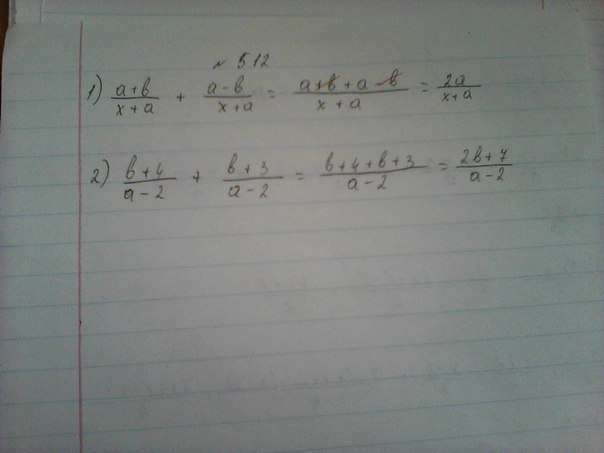 № 512
1) (a+b)/(x+a) + (a-b)/(x+a) = (a+b+a-b)/(x+a) = 2a/(x+a)
2) (b+4)/(a-2) + (b+3)/(a-2) = (b+4+b+3)/(a-2) = (2b+7)/(a-2)